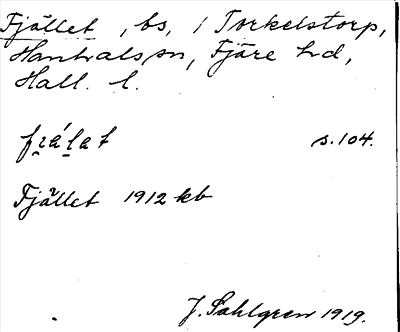 Fjället, bs, i Torkelstorp,
Hanhals sn, Fjäre hd,
Hall. l.
frálat s.104.
Fjället 1912 kb
J. Sahlgren 1919.